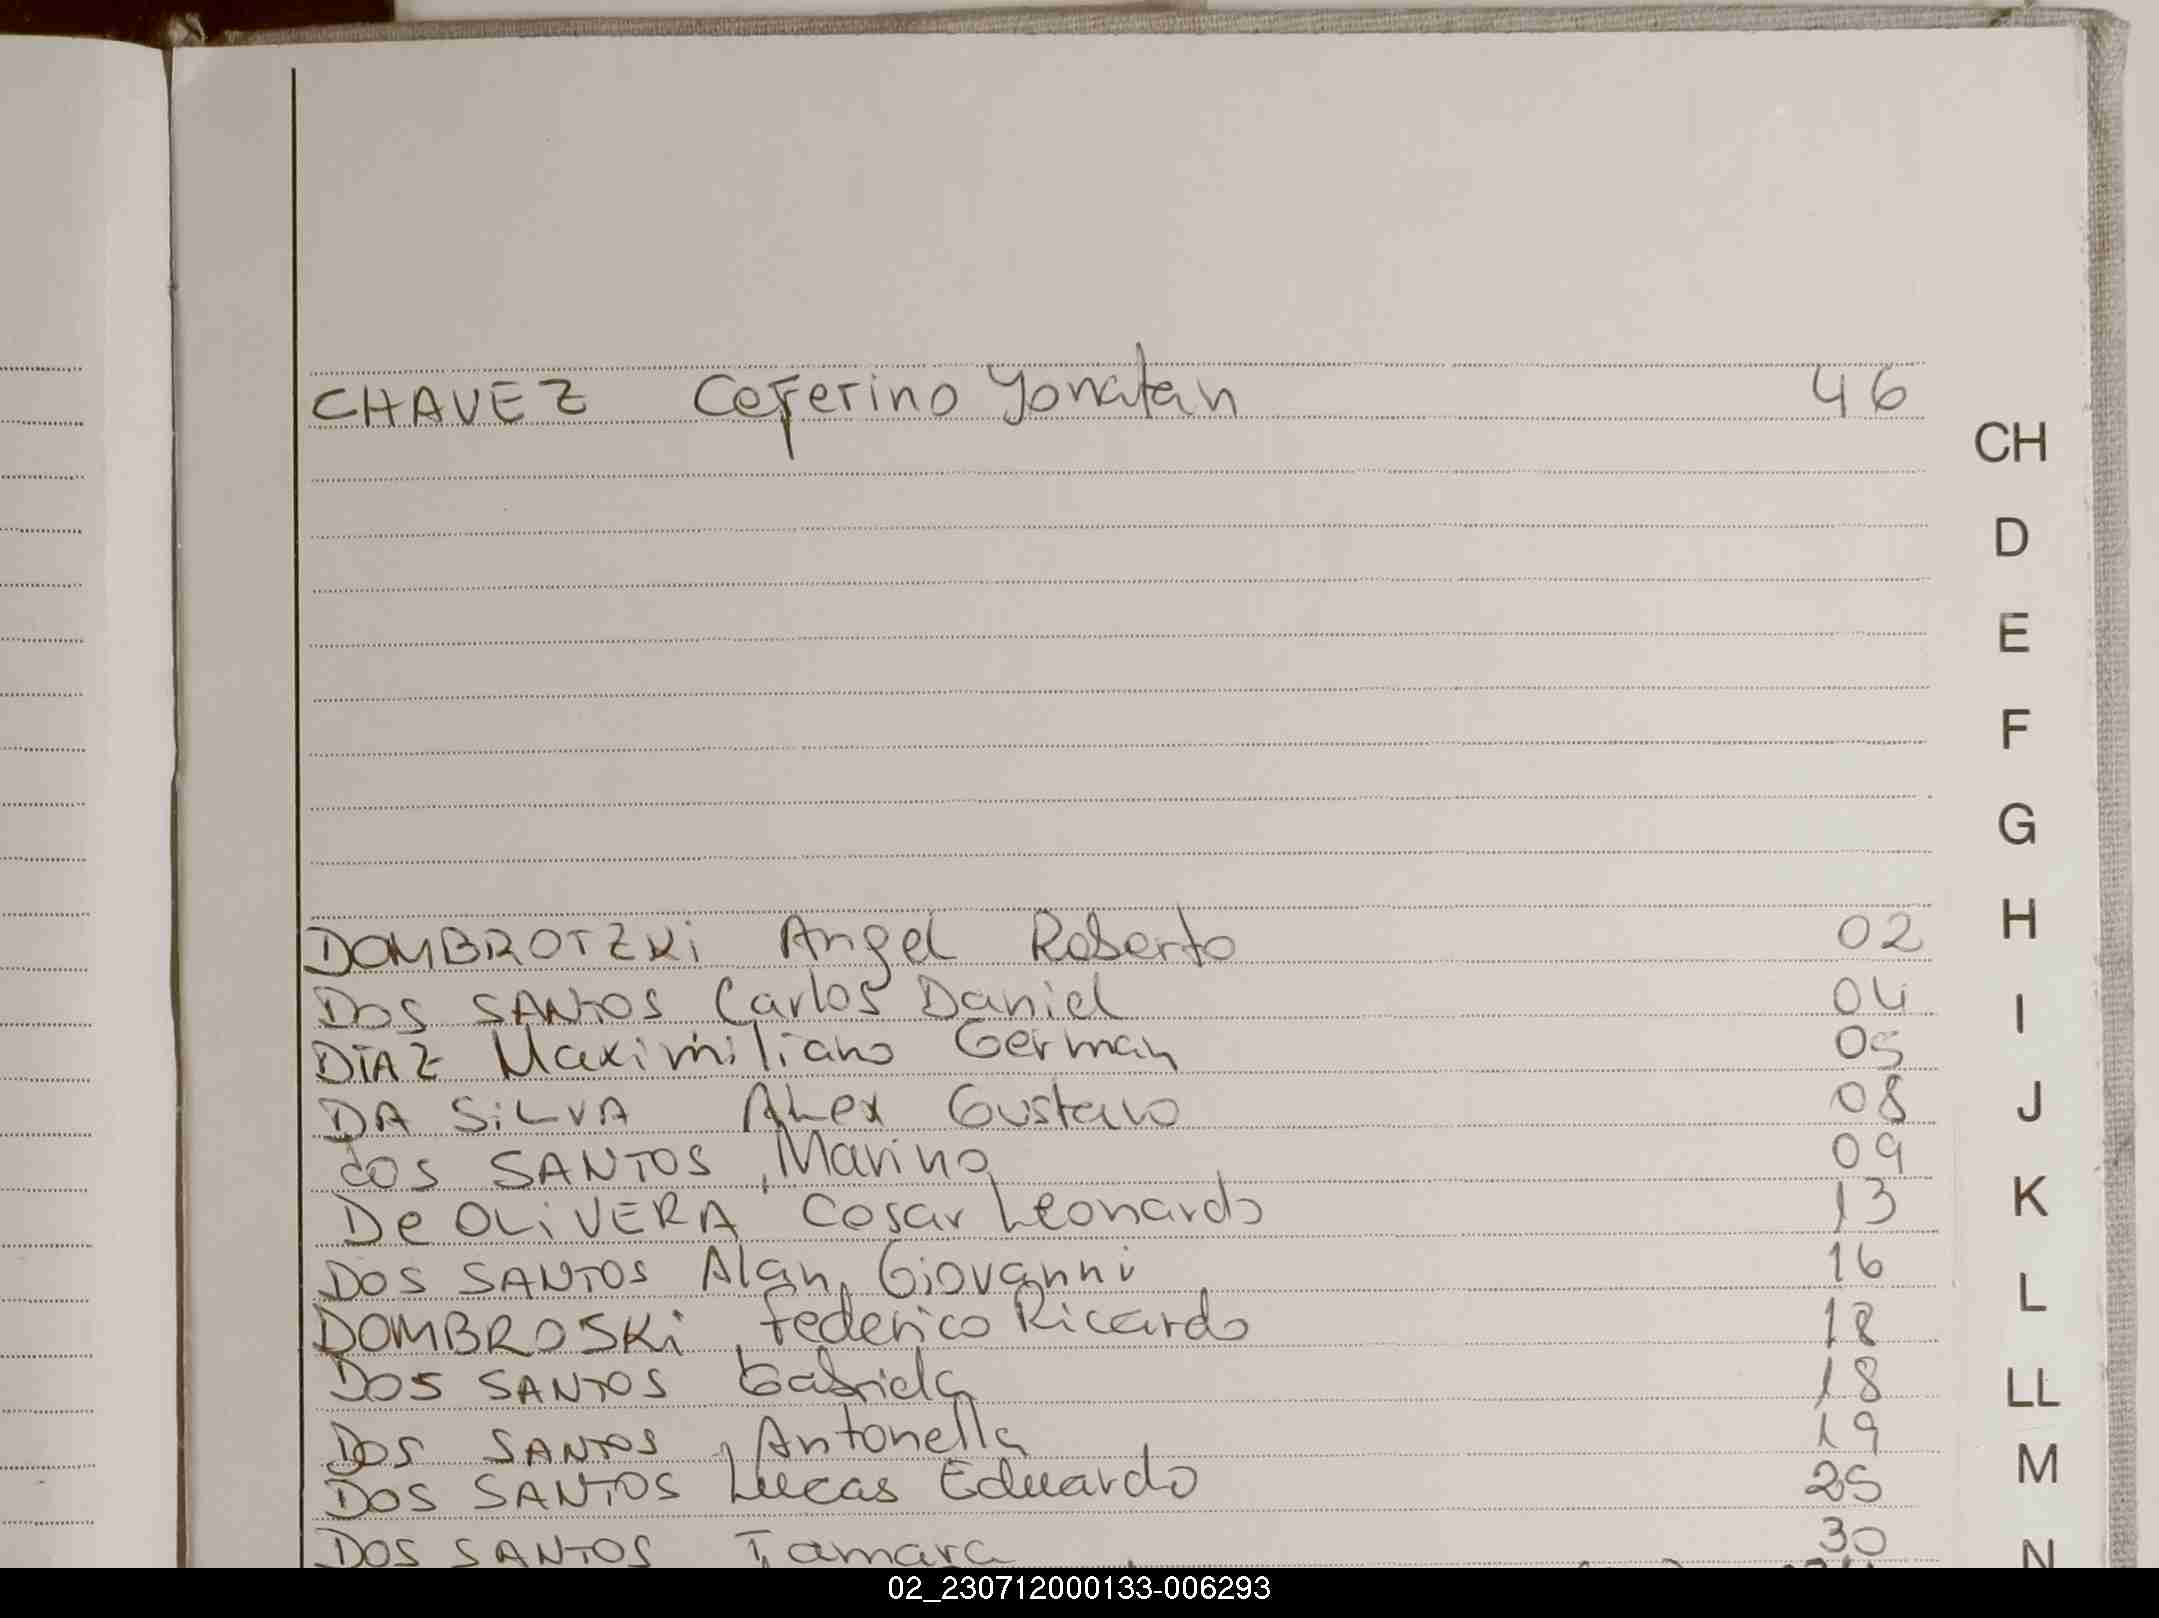 CHAVEZ Ceferino Yonatan 46
CH
D
E
F
G
DOMBROTZKi Angel Roberto 02
H
DOS SANTOS Carlos Daniel 04
I
DIAZ Maximiliano German 05
DA SiLVA ALex Gustavo 08
J
dos SANTOS, Marino 09
De OLiVERA Cesar Leonardo 13
K
DOS SANTOS Alan, Giovanni 16
L
DOMBROSKi, Federico Ricardo 18
DOS SANTOS Gabriela 18
LL
DOS SANTOS, Antonella 19
M
DOS SANTOS Lucas Eduardo 25
DOS SANTOS Tamara 30
N
02_230712000133-006293